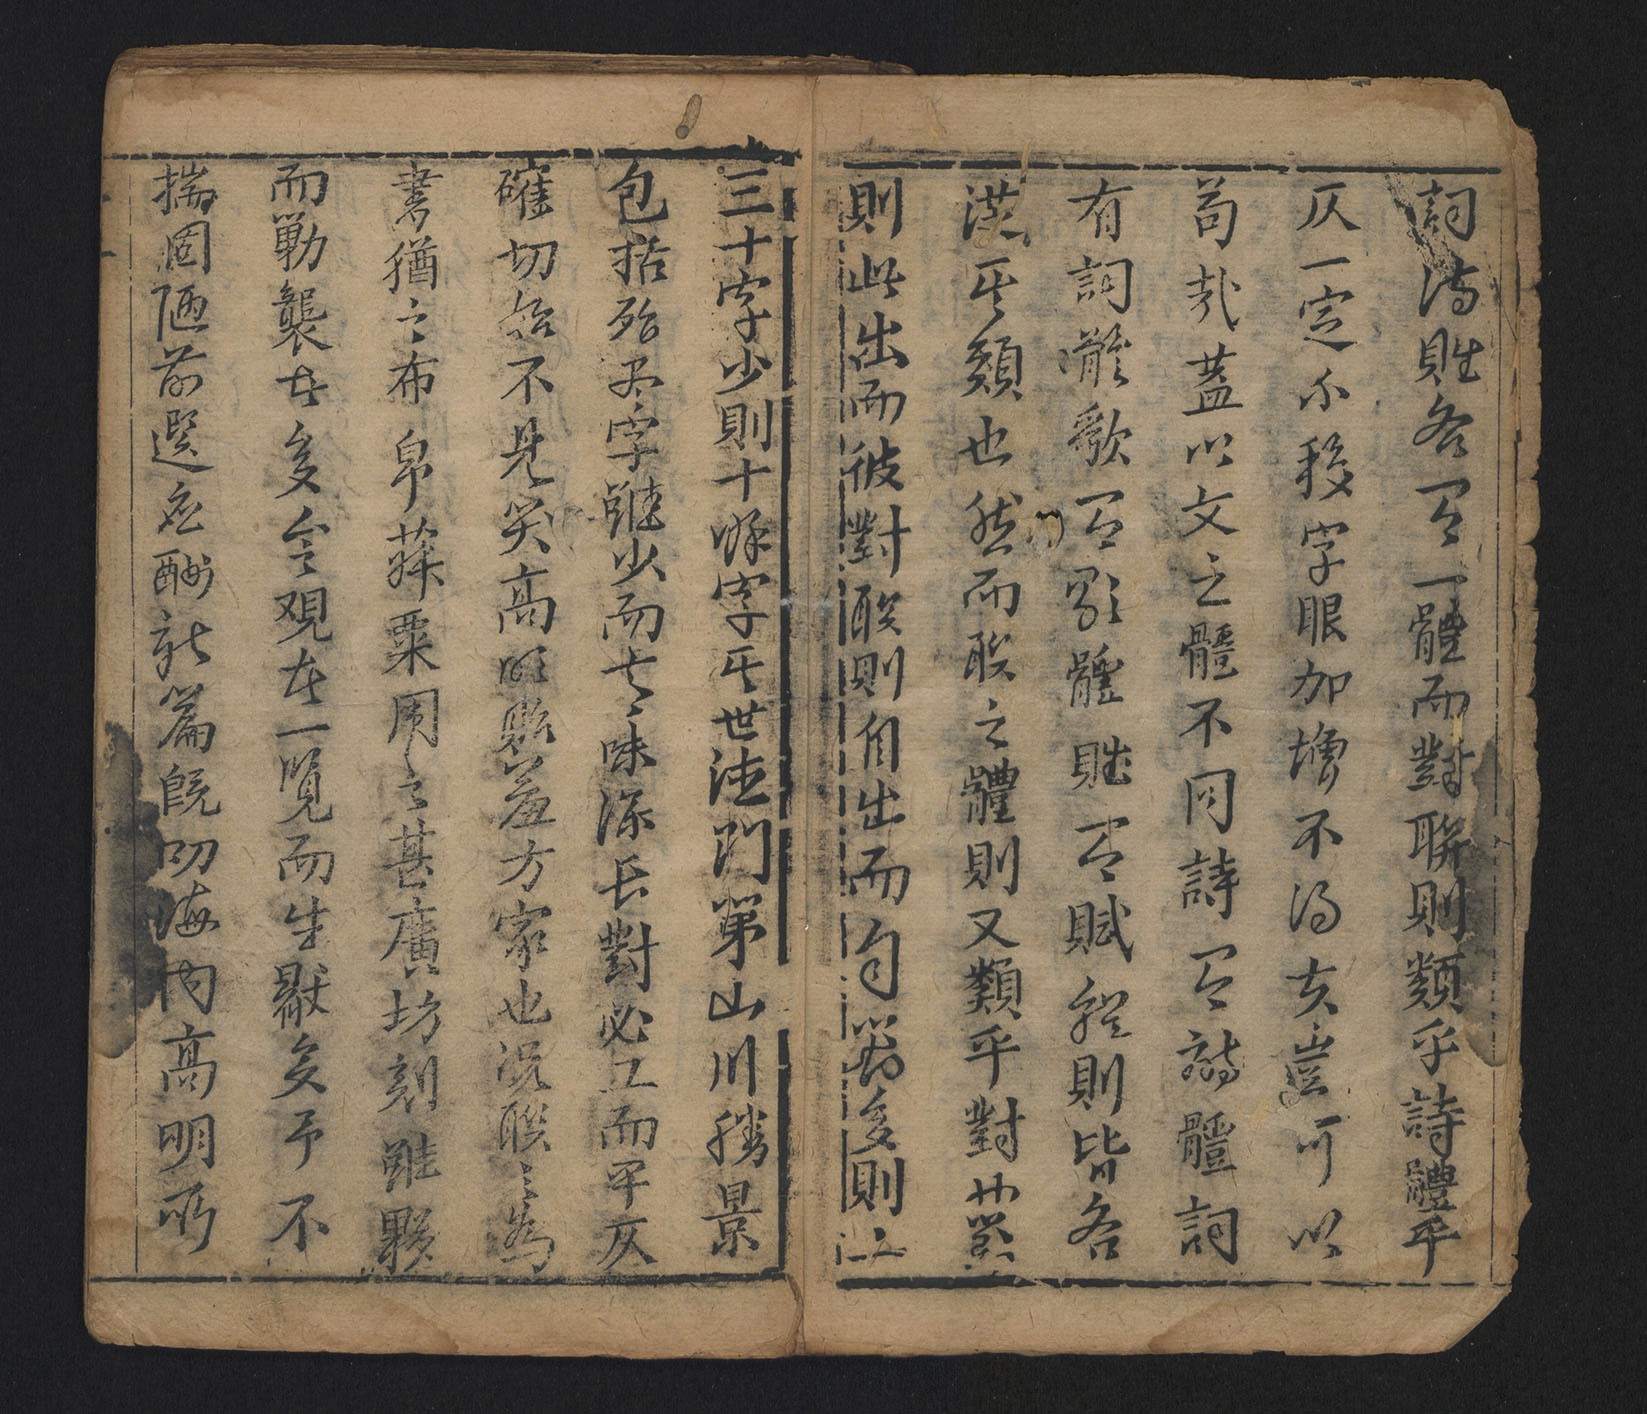 詞詩賍各有一體而對聯則類乎詩體平
仄一定不移字眼加增不得夫豈可以
苟哉蓋以文之體不同詩有詩體詞
有詞體歌有歌體賍有賦體則皆各
從其類也然而聯之體則又類乎對
則此出而彼對聯則自出而自多則二
三十字少則十餘字其世法門第山川勝景
包括殆尽字雖少而言味深長對必工而平仄
確切始不見笑高明貽羞方家也況聯之為
書猶之布帛菽粟用之甚廣坊刻雖夥
而勦襲者多合觀者一覧而生厭矣予不
揣固陋前選應酬新篇既叨海内高明所